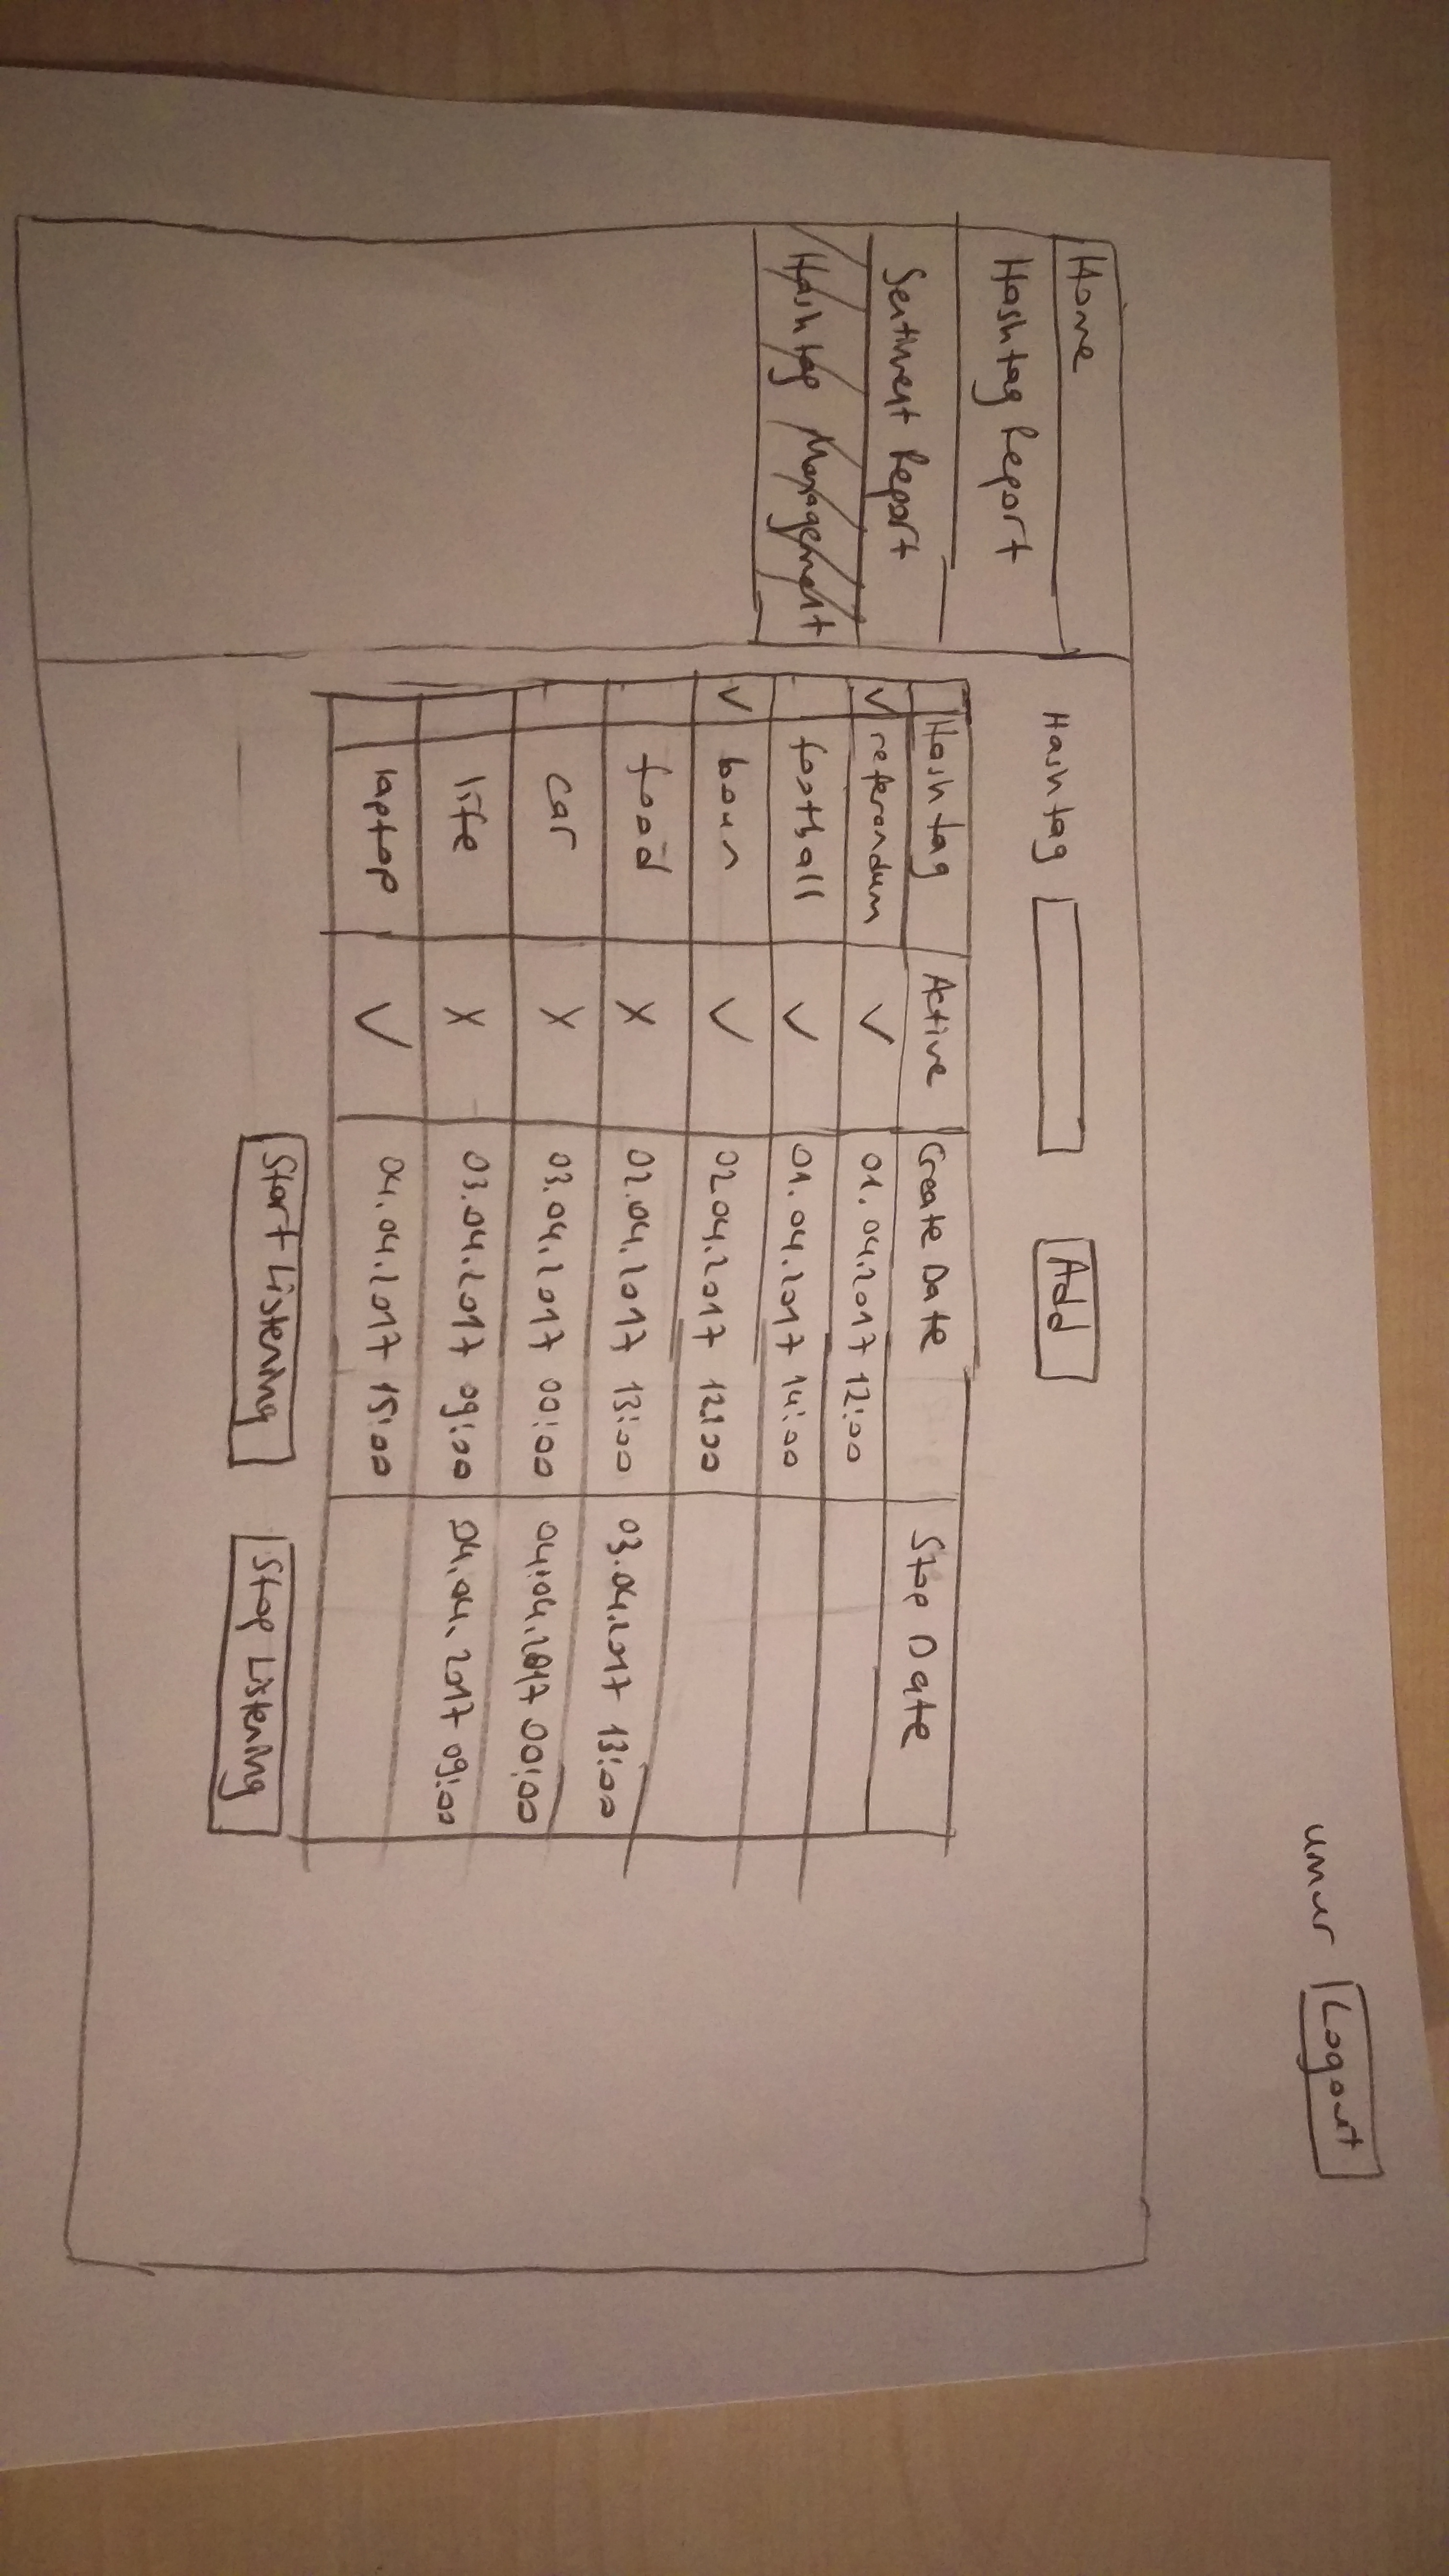 umur Logout
Home
Hashtag Report
Sentiment Report
Hashtag Management
Hashtag Add
Hashtag Active Create Date Stop Date
✓ referandum ✓ 01.04.2017 12:00
football ✓ 01.04.2017 14:00
✓ boun ✓ 02.04.2017 12:00
food X 02.04.2017 13:00 03.04.2017 13:00
car X 03.04.2017 00:00 04:04.2017 00:00
life X 03.04.2017 09:00 04.04.2017 09:00
laptop ✓ 04.04.2017 15:00
Start Listening Stop Listening